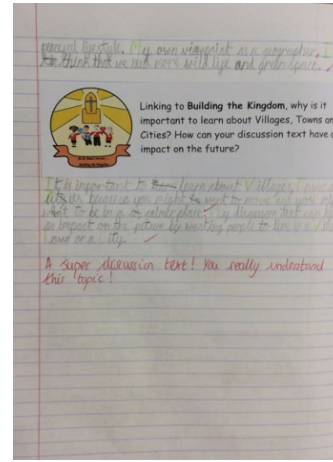 lifestyle. My own viewpoint as a geographer, I
think that we need more wildlife and green space.
Linking to Building the Kingdom, why is it
important to learn about Villages, Towns an
Cities? How can your discussion text have a
impact on the future?
It is important to learn about Villages, Towns
because you might want to move and you mi
want to be in a calmer place. My discussion text can
an impact on the future by wanting people to live in a Vill
Town or a City.
A super discussion text! You really understand
this topic!